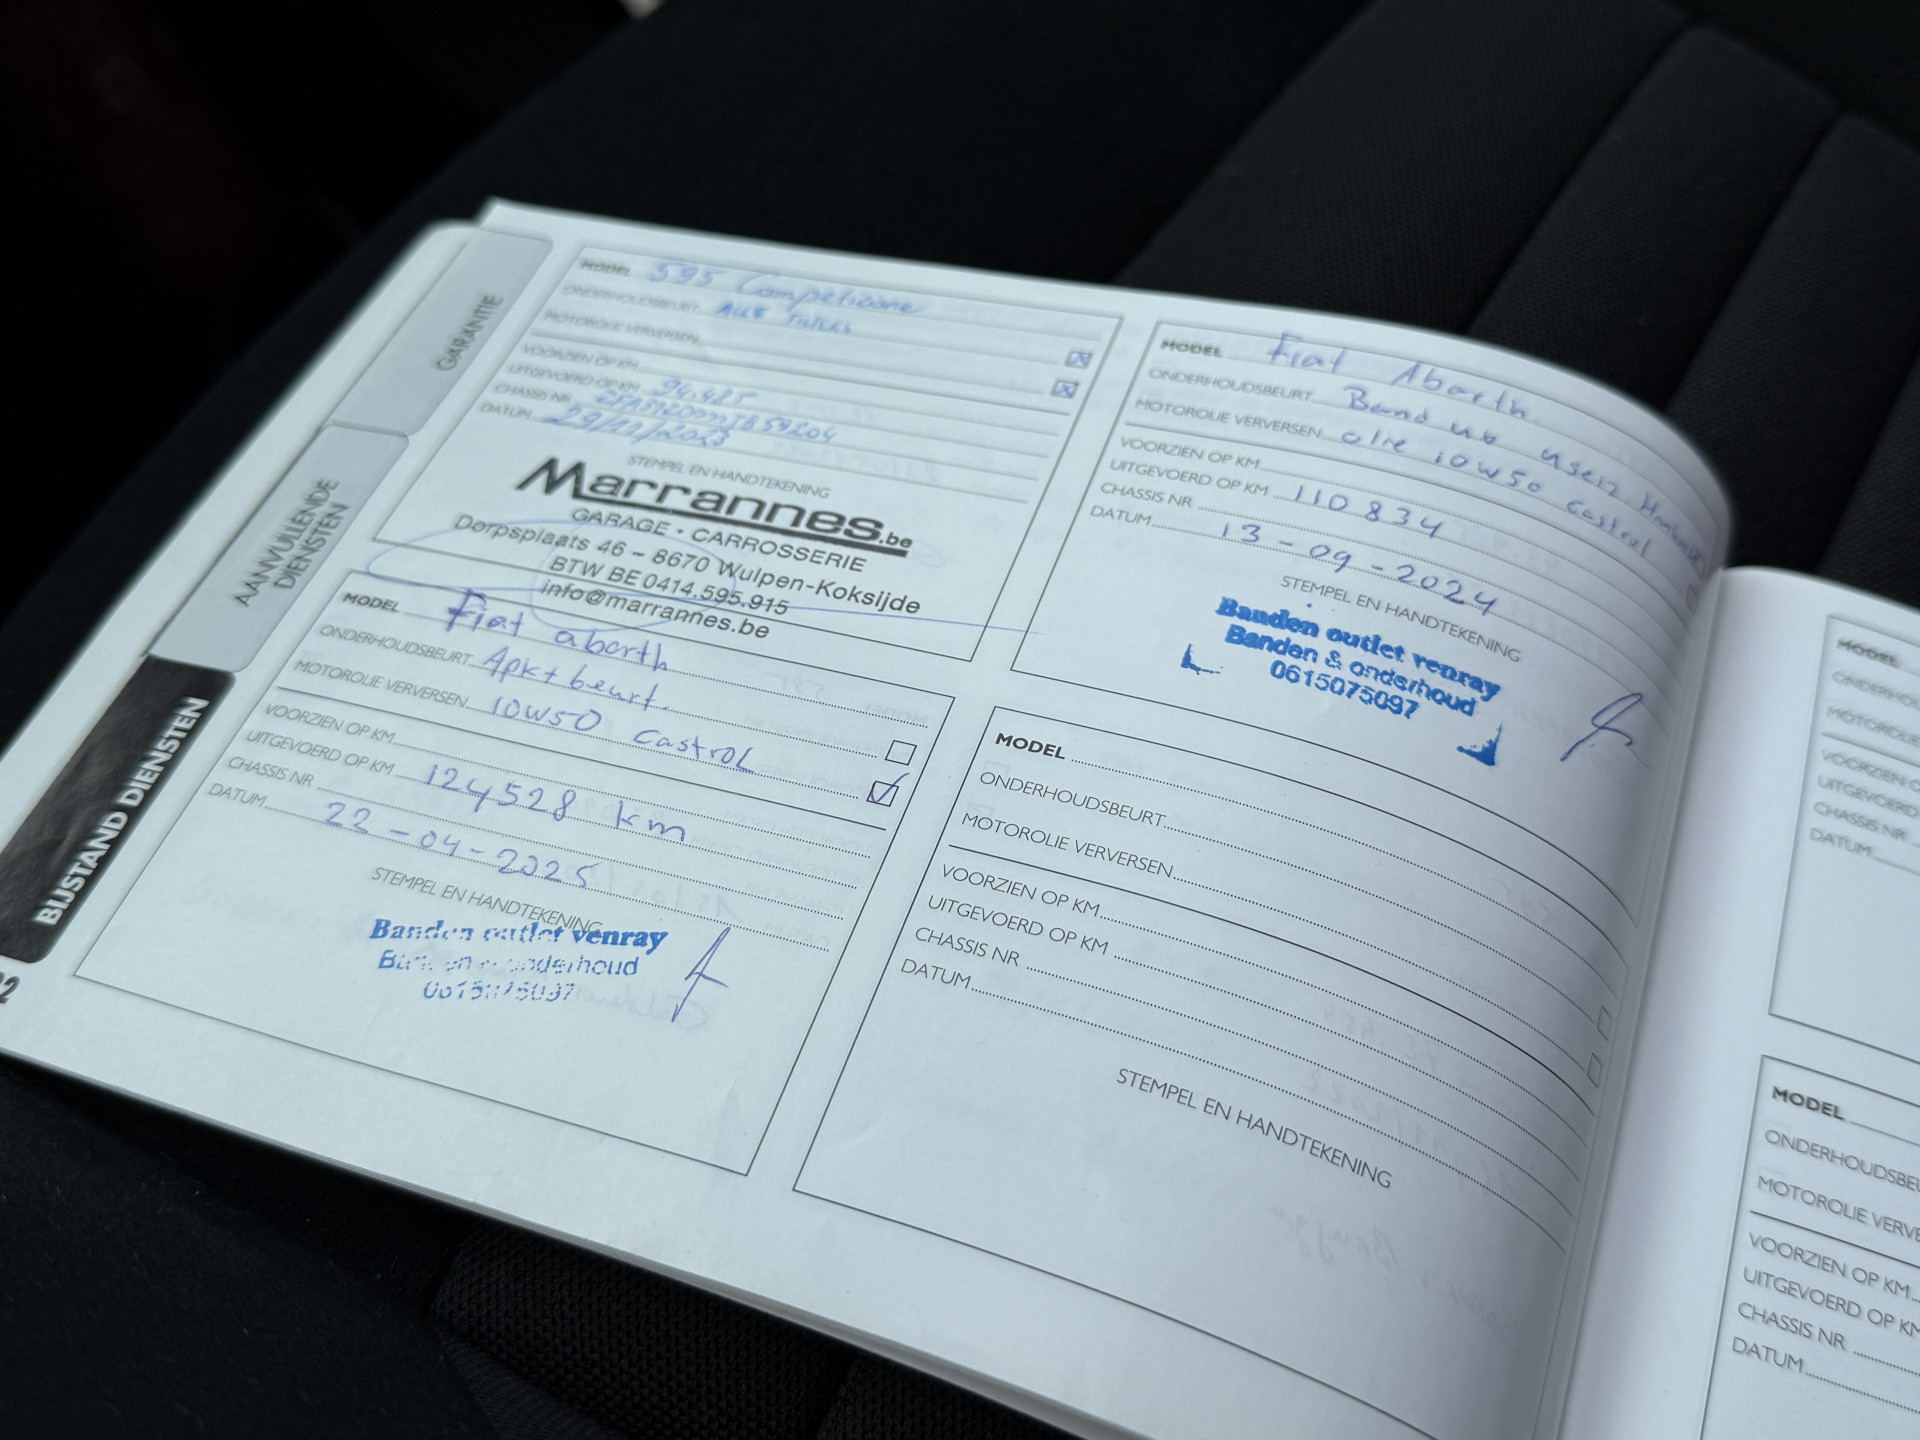 GARANTIE
AANVULLENDE
DIENSTEN
BIJSTAND DIENSTEN
MODEL 595 Competizione
ONDERHOUDSBEURT ALLE FILTERS
MOTOROLIE VERVERSEN
VOORZIEN OP KM
UITGEVOERD OP KM 94.485
CHASSIS NR
DATUM 29/11/2023
STEMPEL EN HANDTEKENING
Marrannes.be
GARAGE • CARROSSERIE
Dorpsplaats 46 – 8670 Wulpen-Koksijde
BTW BE 0414.595.915
info@marrannes.be
MODEL Fiat Abarth
ONDERHOUDSBEURT Band
MOTOROLIE VERVERSEN olie 10W50 castrol
VOORZIEN OP KM
UITGEVOERD OP KM 110834
CHASSIS NR
DATUM 13-09-2024
STEMPEL EN HANDTEKENING
Banden outlet venray
Banden & onderhoud
0615075097
MODEL Fiat abarth
ONDERHOUDSBEURT Apk+beurt.
MOTOROLIE VERVERSEN 10W50 castroL
VOORZIEN OP KM
UITGEVOERD OP KM 124528 km
CHASSIS NR
DATUM 22-04-2025
STEMPEL EN HANDTEKENING
Banden outlet venray
Banden & onderhoud
0615075097
MODEL
ONDERHOUDSBEURT
MOTOROLIE VERVERSEN
VOORZIEN OP KM
UITGEVOERD OP KM
CHASSIS NR
DATUM
STEMPEL EN HANDTEKENING
MODEL
VOORZIEN
UITGEVOERD
CHASSIS NR
DATUM
MODEL
VOORZIEN OP KM
UITGEVOERD OP KM
CHASSIS NR
DATUM